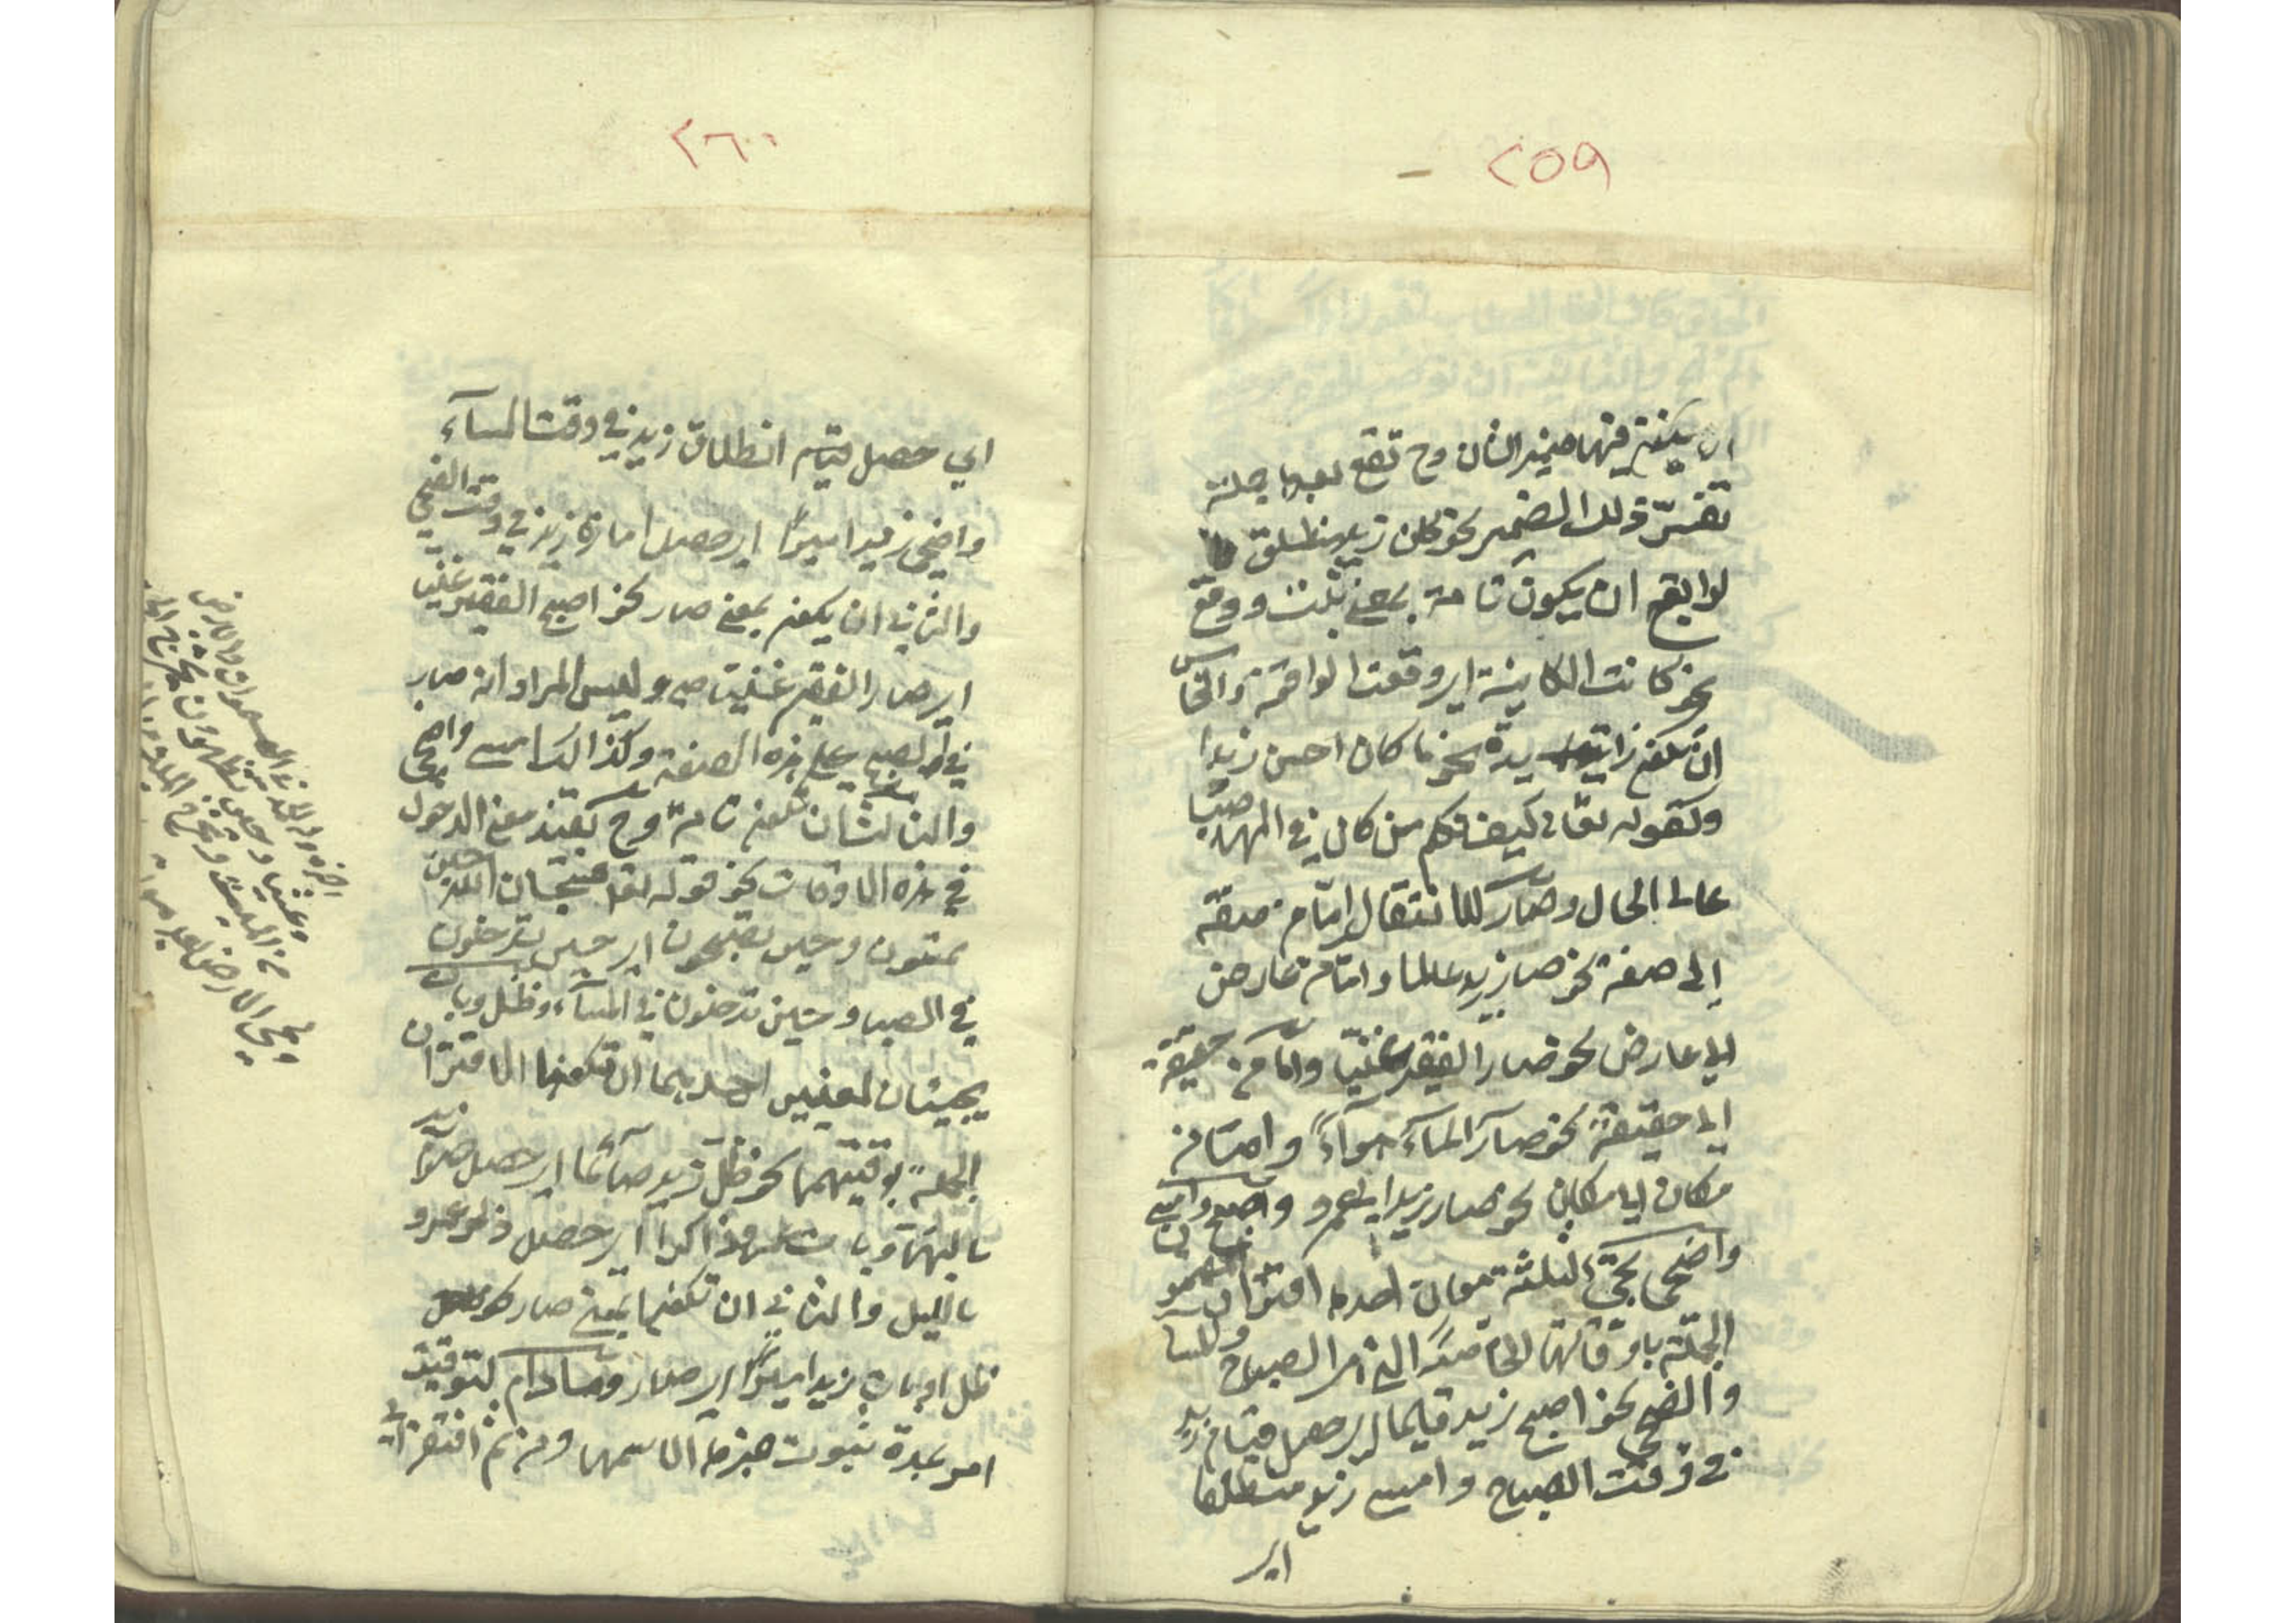 ٢٥٩
ان يكون فيها ضمير الشان وح تقع بعدها جملة
تفسر ذلك الضمير نحو كان زيد منطلق
الرابع ان يكون تامة بمعنى ثبت ووقع
نحو كانت الكاينة اي وقعت الواقعة والخامس
ان تكون زايدة نحو ما كان احسن زيدا
وكقوله تعالى كيف نكلم من كان في المهد صبيا
على الحال وصار للانتقال اما من صفة
الى صفة نحو صار زيد عالما واما من عارض
الى عارض نحو صار الفقير غنيا واما من حقيقة
الى حقيقة نحو صار المآء هوآءً واما من
مكان الى مكان نحو صار زيد الى عمرو واصبح وامسى
واضحى يجئ لثلثة معان احدها اقتران مضمون
الجملة باوقاتها الخاصة التي هي الصباح والمسا
والضحى نحو اصبح زيد قايما اي حصل قيام زيد
في وقت الصباح وامسى زيد منطلقا
اي
٢٦٠
اي حصل انطلاق زيد في وقت المسآء
واضحى زيد اميرًا اي حصل امارة زيد في وقت الضحى
والثاني ان يكون بمعنى صار نحو اصبح الفقير غنيا
اي صار الفقير غنيا وليس المراد انه صار
في الصبح على هذه الصفة وكذا امسى واضحى
والثالث ان تكون تامة وح يفيد معنى الدخول
في هذه الاوقات نحو قوله تعالى فسبحان الله حين
تمسون وحين تصبحون اي حين تدخلون
في الصباح وحين تدخلون في المسآء وظل وبات
يجيئان لمعنيين احديهما ان تكونا لاقتران
الجملة بوقتيهما نحو ظل زيد صآئما اي حصل صوم زيد
بالنهار وبات عمرو ذاكرا اي حصل ذكر عمرو
بالليل والثاني ان تكونا بمعنى صار نحو
ظل او بات زيد اميرًا اي صار وما دام لتوقيت
امر بمدة ثبوت خبرها لاسمها ومن ثم افتقر الى
اخره وله الحمد في السموات والارض
وعشيا وحين تظهرون يخرج الحي
من الميت ويخرج الميت من الحي
ويحيي الارض بعد موتها